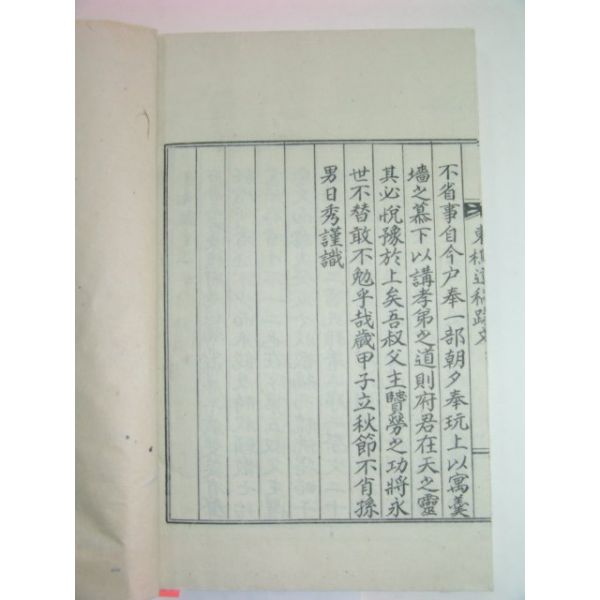 東樵遺稿跋文
不省事自今戶奉一部朝夕奉玩上以寓羹
墻之慕下以講孝弟之道則府君在天之靈
其必悅豫於上矣吾叔父主贒勞之功將永
世不替敢不勉乎哉歲甲子立秋節不肖孫
男日秀謹識